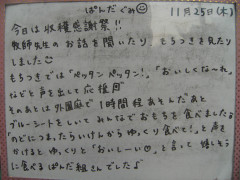 ぱんだぐみ☺
11月25日(木)
今日は収穫感謝祭!!
牧師先生のお話を聞いたり、もちつきを見たり
しました☺
もちつきでは「ペッタンペッタン!」「おいしくな〜れ」
などと声を出して応援
そのあとは外園庭で1時間程あそんだあと
ブルーシートをしいてみんなでおもちを食べました
「のどにつまったらいけんからゆっくり食べて!」と声を
かけると ゆっくりと「おいし〜い♡」と言って嬉しそう
に食べるぱんだ組さんでした♪